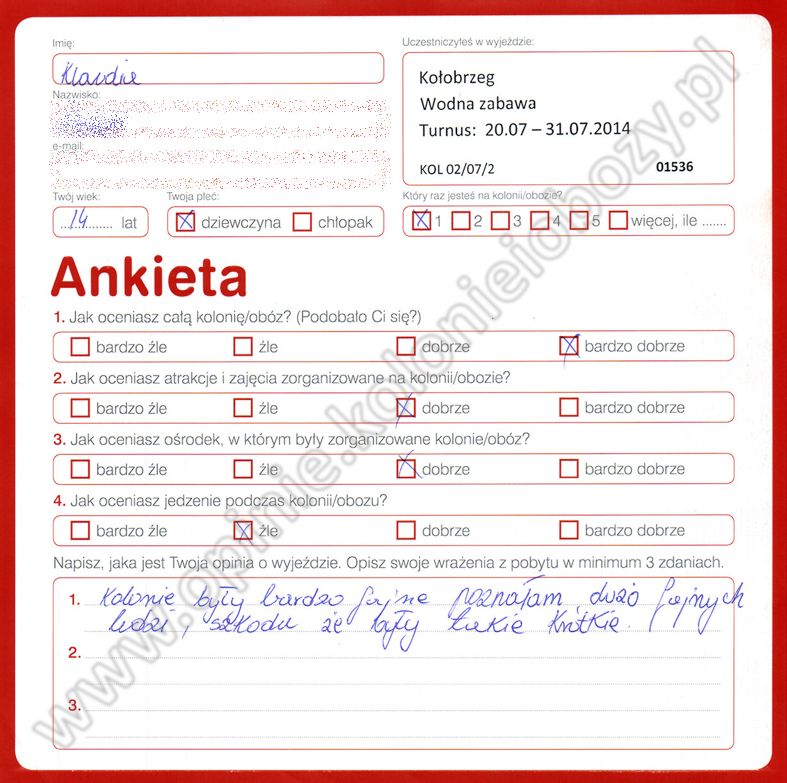 Imię:
Klaudia
Nazwisko:
e-mail:
Twój wiek:
14 lat
Twoja płeć:
dziewczyna chłopak
Uczestniczyłeś w wyjeździe:
Kołobrzeg
Wodna zabawa
Turnus: 20.07 – 31.07.2014
KOL 02/07/2 01536
Który raz jesteś na kolonii/obozie?
1 2 3 4 5 więcej, ile .......
Ankieta
1. Jak oceniasz całą kolonię/obóz? (Podobało Ci się?)
bardzo źle źle dobrze bardzo dobrze
2. Jak oceniasz atrakcje i zajęcia zorganizowane na kolonii/obozie?
bardzo źle źle dobrze bardzo dobrze
3. Jak oceniasz ośrodek, w którym były zorganizowane kolonie/obóz?
bardzo źle źle dobrze bardzo dobrze
4. Jak oceniasz jedzenie podczas kolonii/obozu?
bardzo źle źle dobrze bardzo dobrze
Napisz, jaka jest Twoja opinia o wyjeździe. Opisz swoje wrażenia z pobytu w minimum 3 zdaniach.
1. Kolonie były bardzo fajne poznałam dużo fajnych
ludzi, szkoda że były takie krótkie.
2.
3.
www.opinie.kolonieiobozy.pl